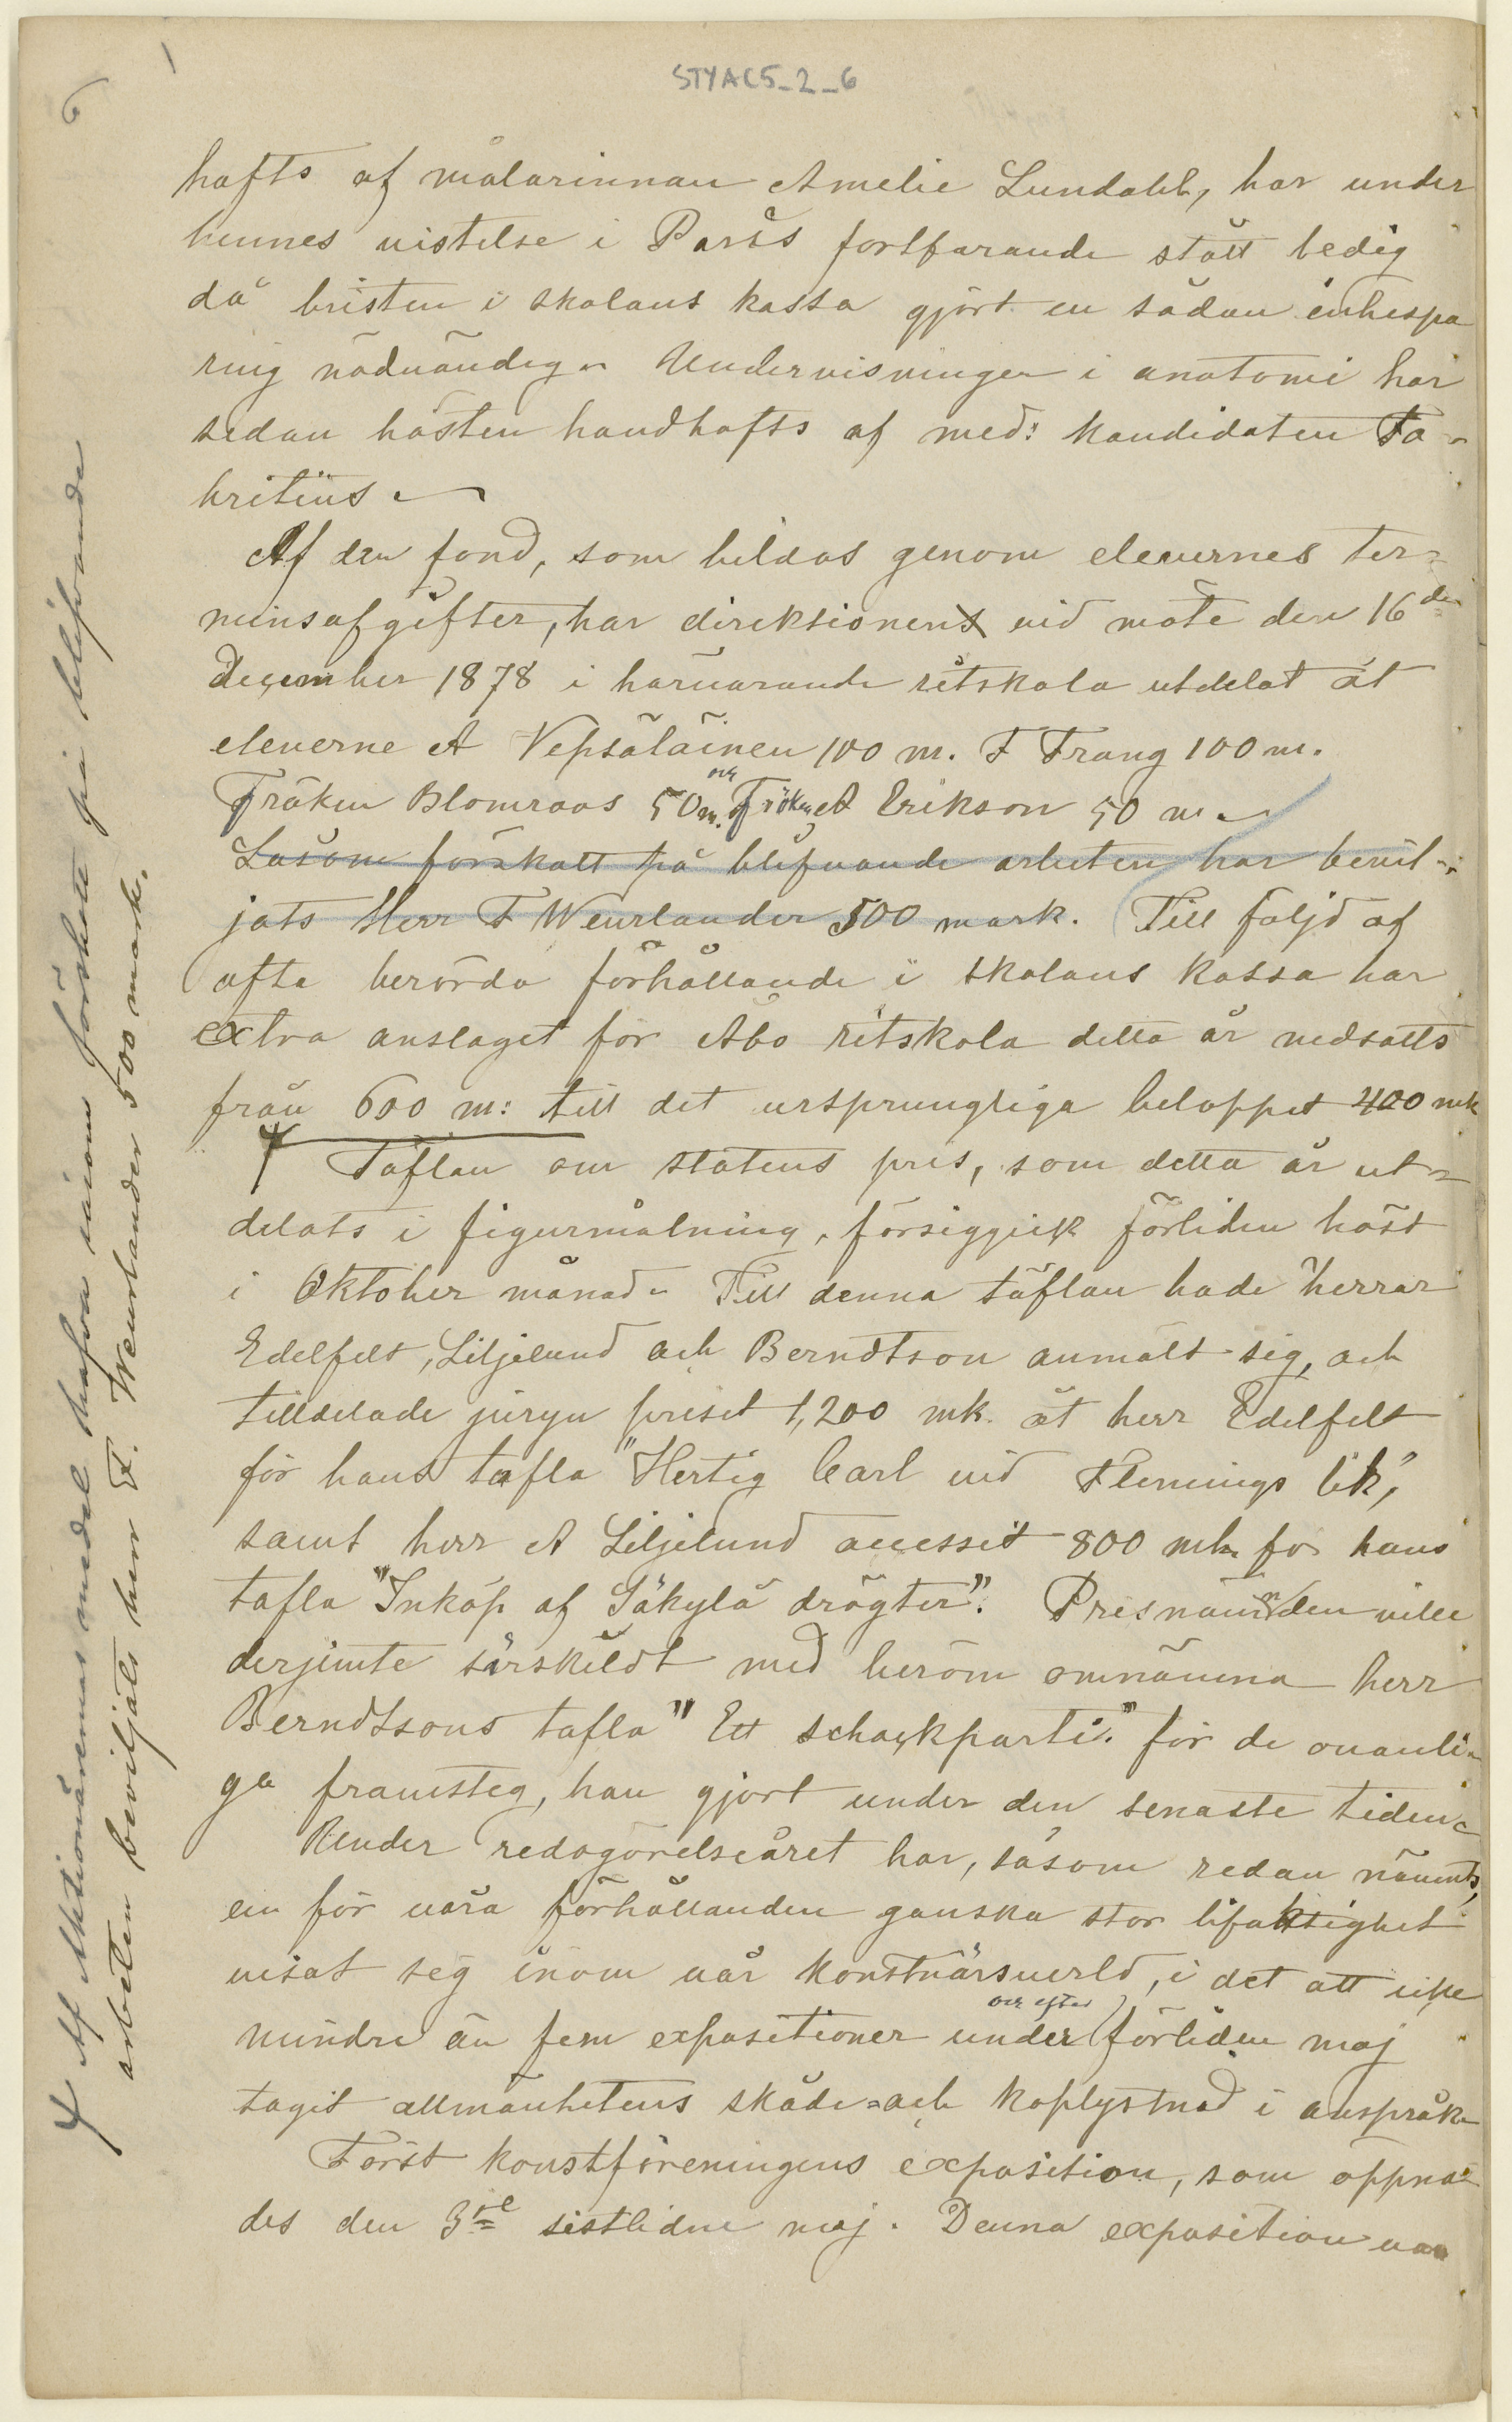 STYAC5_2_6
6
hafts af målarinnan Amelie Lundahl, har under
hennes vistelse i Paris fortfarande stått ledig
då bristen i skolans kassa gjort en sådan inbespa
ring nödvändig. Undervisningen i anatomi har
sedan hösten handhafts af med: kandidaten Fa-
britius.
Af den fond, som bildas genom elevernes ter-
minsafgifter, har direktionens vid möte den 16de
December 1878 i härvarande ritskola utdelat åt
eleverne A Vepsäläinen 100 m. F Frang 100 m.
Fröken Blomroos 50 m. och Fröken A Erikson 50 m.
Såsom förskott på blifvande arbeten har bevil-
jats Herr F Wenrlander 500 mark. Till följd af
ofta berörda förhållande i skolans kassa har
extra anslaget för Åbo ritskola detta år nedsatts
från 600 m: till det ursprungliga beloppet 400 mk
Täflan om statens pris, som detta år ut-
delats i figurmålning, försiggick förliden höst
i Oktober månad. Till denna täflan hade herrar
Edelfelt, Liljelund och Berndtson anmält sig, och
tilldelade juryn priset 1,200 mk. åt herr Edelfelt
för hans tafla "Hertig Carl vid Flemings lik",
samt herr A Liljelund accessit 800 mk för hans
tafla "Inköp af Säkylä drägter". Prisnämnden ville
derjemte särskildt med beröm omnämna herr
Berndtsons tafla "Ett schackparti" för de ovanli-
ga framsteg, han gjort under den senaste tiden.
Under redogörelseåret har, såsom redan nämnts,
en för våra förhållanden ganska stor lifaktighet
visat seg inom vår konstnärsverld, i det att icke
mindre än fem expositioner under och efter förliden maj
tagit allmänhetens skåde- och köplystnad i anspråk
Först konstföreningens exposition, som öppna-
des den 3die sistlidne maj. Denna exposition var
Af Aktionärernas medel hafva såsom förskott på blifvande
arbeten beviljats herr F. Wenrlander 500 mark.